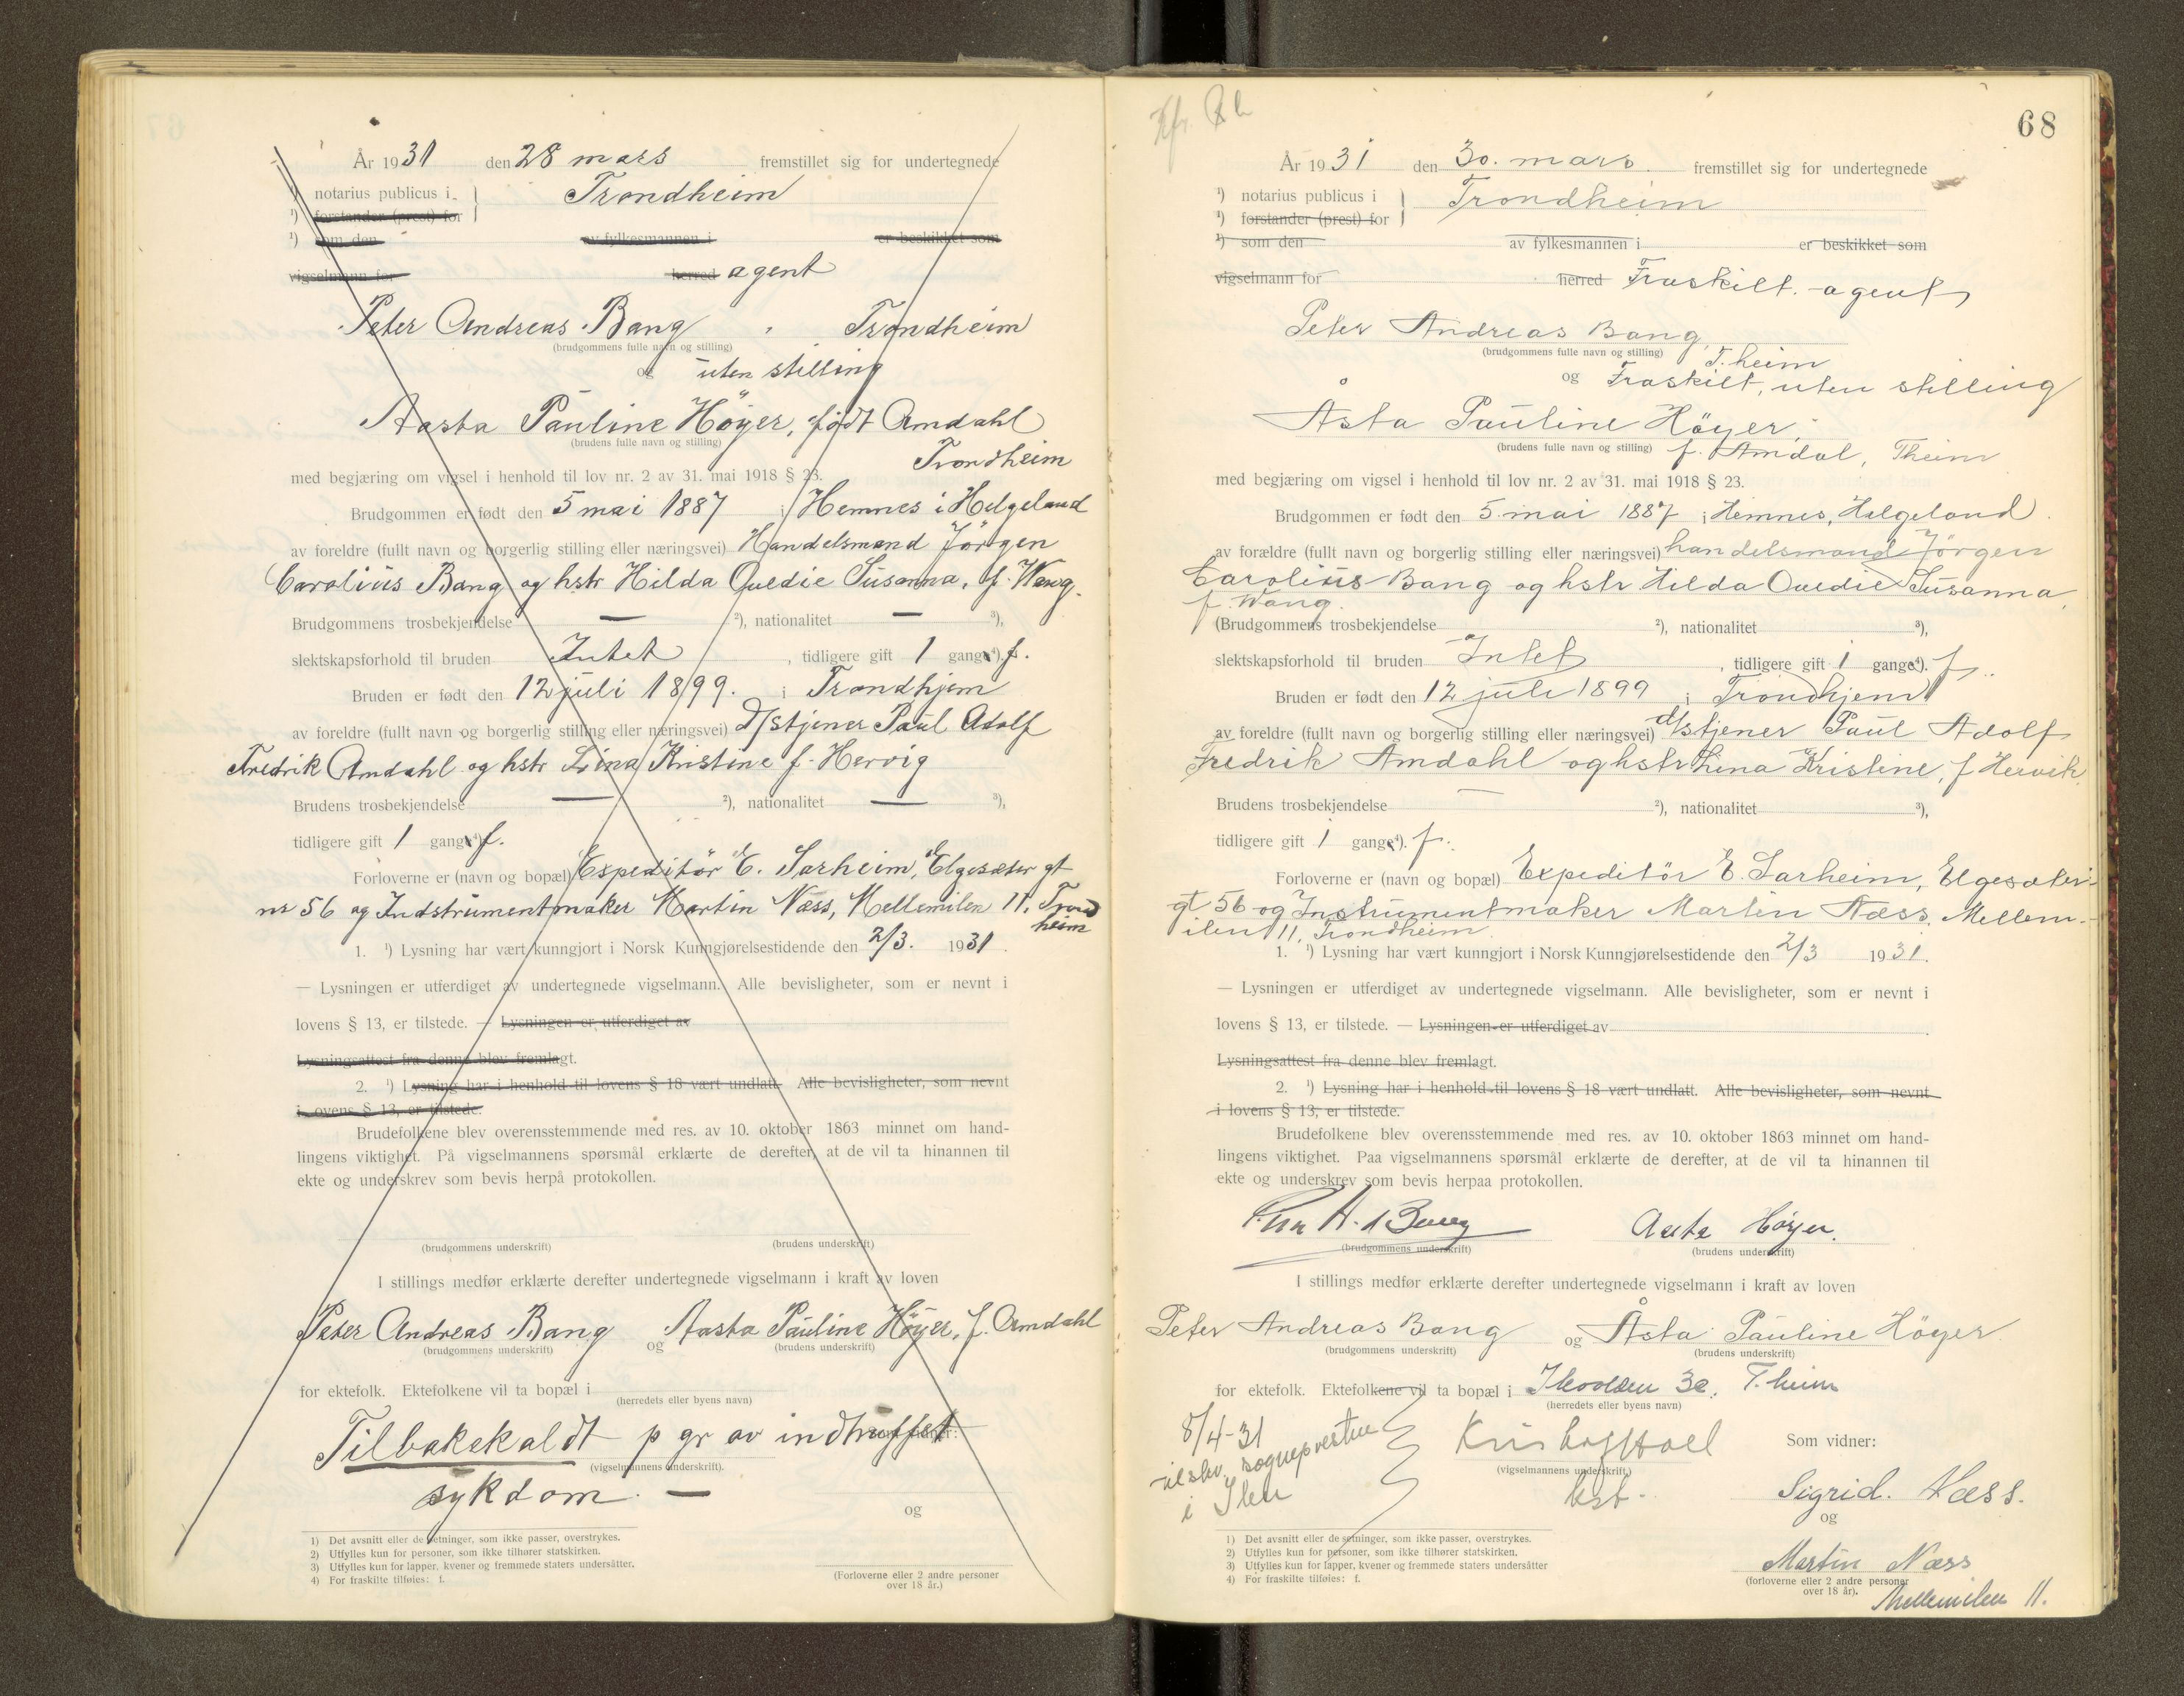 År 1931 den 28 mars fremstillet sig for undertegnede
¹) notarius publicus i } Trondheim
¹) forstander (prest) for
¹) som den av fylkesmannen i er beskikket som
vigselmann for herred agent
Peter Andreas Bang, Trondheim
(brudgommens fulle navn og stilling)
og uten stilling
Aasta Pauline Höyer, født Amdahl
(brudens fulle navn og stilling)
Trondheim
med begjæring om vigsel i henhold til lov nr. 2 av 31. mai 1918 § 23.
Brudgommen er født den 5 mai 1887 i Hemnes i Helgeland
av foreldre (fullt navn og borgerlig stilling eller næringsvei) Handelsmand Jörgen
Carolius Bang og hstr Hilda Ovedie Susanna, f. Wang.
Brudgommens trosbekjendelse — ²), nationalitet — ³),
slektskapsforhold til bruden Intet, tidligere gift 1 gang⁴). f.
Bruden er født den 12 juli 1899. i Trondhjem
av foreldre (fullt navn og borgerlig stilling eller næringsvei) d/stjener Paul Adolf
Fredrik Amdahl og hstr Lina Kristine f. Hervig
Brudens trosbekjendelse — ²), nationalitet — ³),
tidligere gift 1 gang⁴) f.
Forloverne er (navn og bopæl) Expeditör E. Sarheim, Elgesæter gt
nr 56 og Indstrumentmaker Martin Næss, Mellemilen 11. Trond
heim
1. ¹) Lysning har vært kunngjort i Norsk Kunngjørelsestidende den 2/3. 1931.
— Lysningen er utferdiget av undertegnede vigselmann. Alle bevisligheter, som er nevnt i
lovens § 13, er tilstede. — Lysningen er utferdiget av
Lysningsattest fra denne blev fremlagt.
2. ¹) Lysning har i henhold til lovens § 18 vært undlatt. Alle bevisligheter, som nevnt
i lovens § 13, er tilstede.
Brudefolkene blev overensstemmende med res. av 10. oktober 1863 minnet om hand-
lingens viktighet. På vigselmannens spørsmål erklærte de derefter, at de vil ta hinannen til
ekte og underskrev som bevis herpå protokollen.
(brudgommens underskrift) (brudens underskrift)
I stillings medfør erklærte derefter undertegnede vigselmann i kraft av loven
Peter Andreas Bang og Aasta Pauline Höyer, f. Amdahl
(brudgommens underskrift) (brudens underskrift)
for ektefolk. Ektefolkene vil ta bopæl i
(herredets eller byens navn)
Tilbakekaldt p gr av indtruffet
(vigselmannens underskrift).
sykdom. —
og
1) Det avsnitt eller de setninger, som ikke passer, overstrykes.
2) Utfylles kun for personer, som ikke tilhører statskirken.
3) Utfylles kun for lapper, kvener og fremmede staters undersåtter.
4) For fraskilte tilføies: f.
(Forloverne eller 2 andre personer
over 18 år.)
68
År 1931 den 30. mars. fremstillet sig for undertegnede
¹) notarius publicus i } Trondheim
¹) forstander (prest) for
¹) som den av fylkesmannen i er beskikket som
vigselmann for herred Fraskilt. agent
Peter Andreas Bang,
(brudgommens fulle navn og stilling) T.heim
og Fraskilt, uten stilling
Åsta Pauline Höyer,
(brudens fulle navn og stilling) f. Amdal, Theim
med begjæring om vigsel i henhold til lov nr. 2 av 31. mai 1918 § 23.
Brudgommen er født den 5. mai 1887 i Hemnes, Helgeland.
av forældre (fullt navn og borgerlig stilling eller næringsvei) handelsmand Jörgen
Carolius Bang og hstr Hilda Ovedie Susanna,
f. Wang.
(Brudgommens trosbekjendelse ²), nationalitet ³),
slektskapsforhold til bruden Intet, tidligere gift 1 gange⁴). f.
Bruden er født den 12 juli 1899 i Trondhjem
av foreldre (fullt navn og borgerlig stilling eller næringsvei) d/stjener Paul Adolf
Fredrik Amdahl og hstr Lina Kristine, f Hervik.
Brudens trosbekjendelse — ²), nationalitet ³),
tidligere gift 1 gange⁴). f.
Forloverne er (navn og bopæl) Expeditör E. Sarheim, Elgesæter-
gt 56 og Instrumentmaker Martin Næss. Mellem-
ilen 11, Trondheim.
1. ¹) Lysning har vært kunngjort i Norsk Kunngjørelsestidende den 2/3 1931.
— Lysningen er utferdiget av undertegnede vigselmann. Alle bevisligheter, som er nevnt i
lovens § 13, er tilstede. — Lysningen er utferdiget av
Lysningsattest fra denne blev fremlagt.
2. ¹) Lysning har i henhold til lovens § 18 vært undlatt. Alle bevisligheter, som nevnt
i lovens § 13, er tilstede.
Brudefolkene blev overensstemmende med res. av 10. oktober 1863 minnet om hand-
lingens viktighet. Paa vigselmannens spørsmål erklærte de derefter, at de vil ta hinannen til
ekte og underskrev som bevis herpaa protokollen.
Bang Aasta Höyer.
(brudgommens underskrift) (brudens underskrift)
I stillings medfør erklærte derefter undertegnede vigselmann i kraft av loven
Peter Andreas Bang og Åsta Pauline Höyer.
(brudgommens underskrift) (brudens underskrift)
for ektefolk. Ektefolkene vil ta bopæl i T.heim
(herredets eller byens navn)
8/4-31
sognepresten
i Ilen
Som vidner:
(vigselmannens underskrift)
Sigrid. Næss.
og
Martin Næss
(forloverne eller 2 andre personer
over 18 år).
Mellemilen 11.
1) Det avsnitt eller de setninger, som ikke passer, overstrykes.
2) Utfylles kun for personer, som ikke tilhører statskirken.
3) Utfylles kun for lapper, kvener og fremmede staters undersåtter
4) For fraskilte tilføies: f.